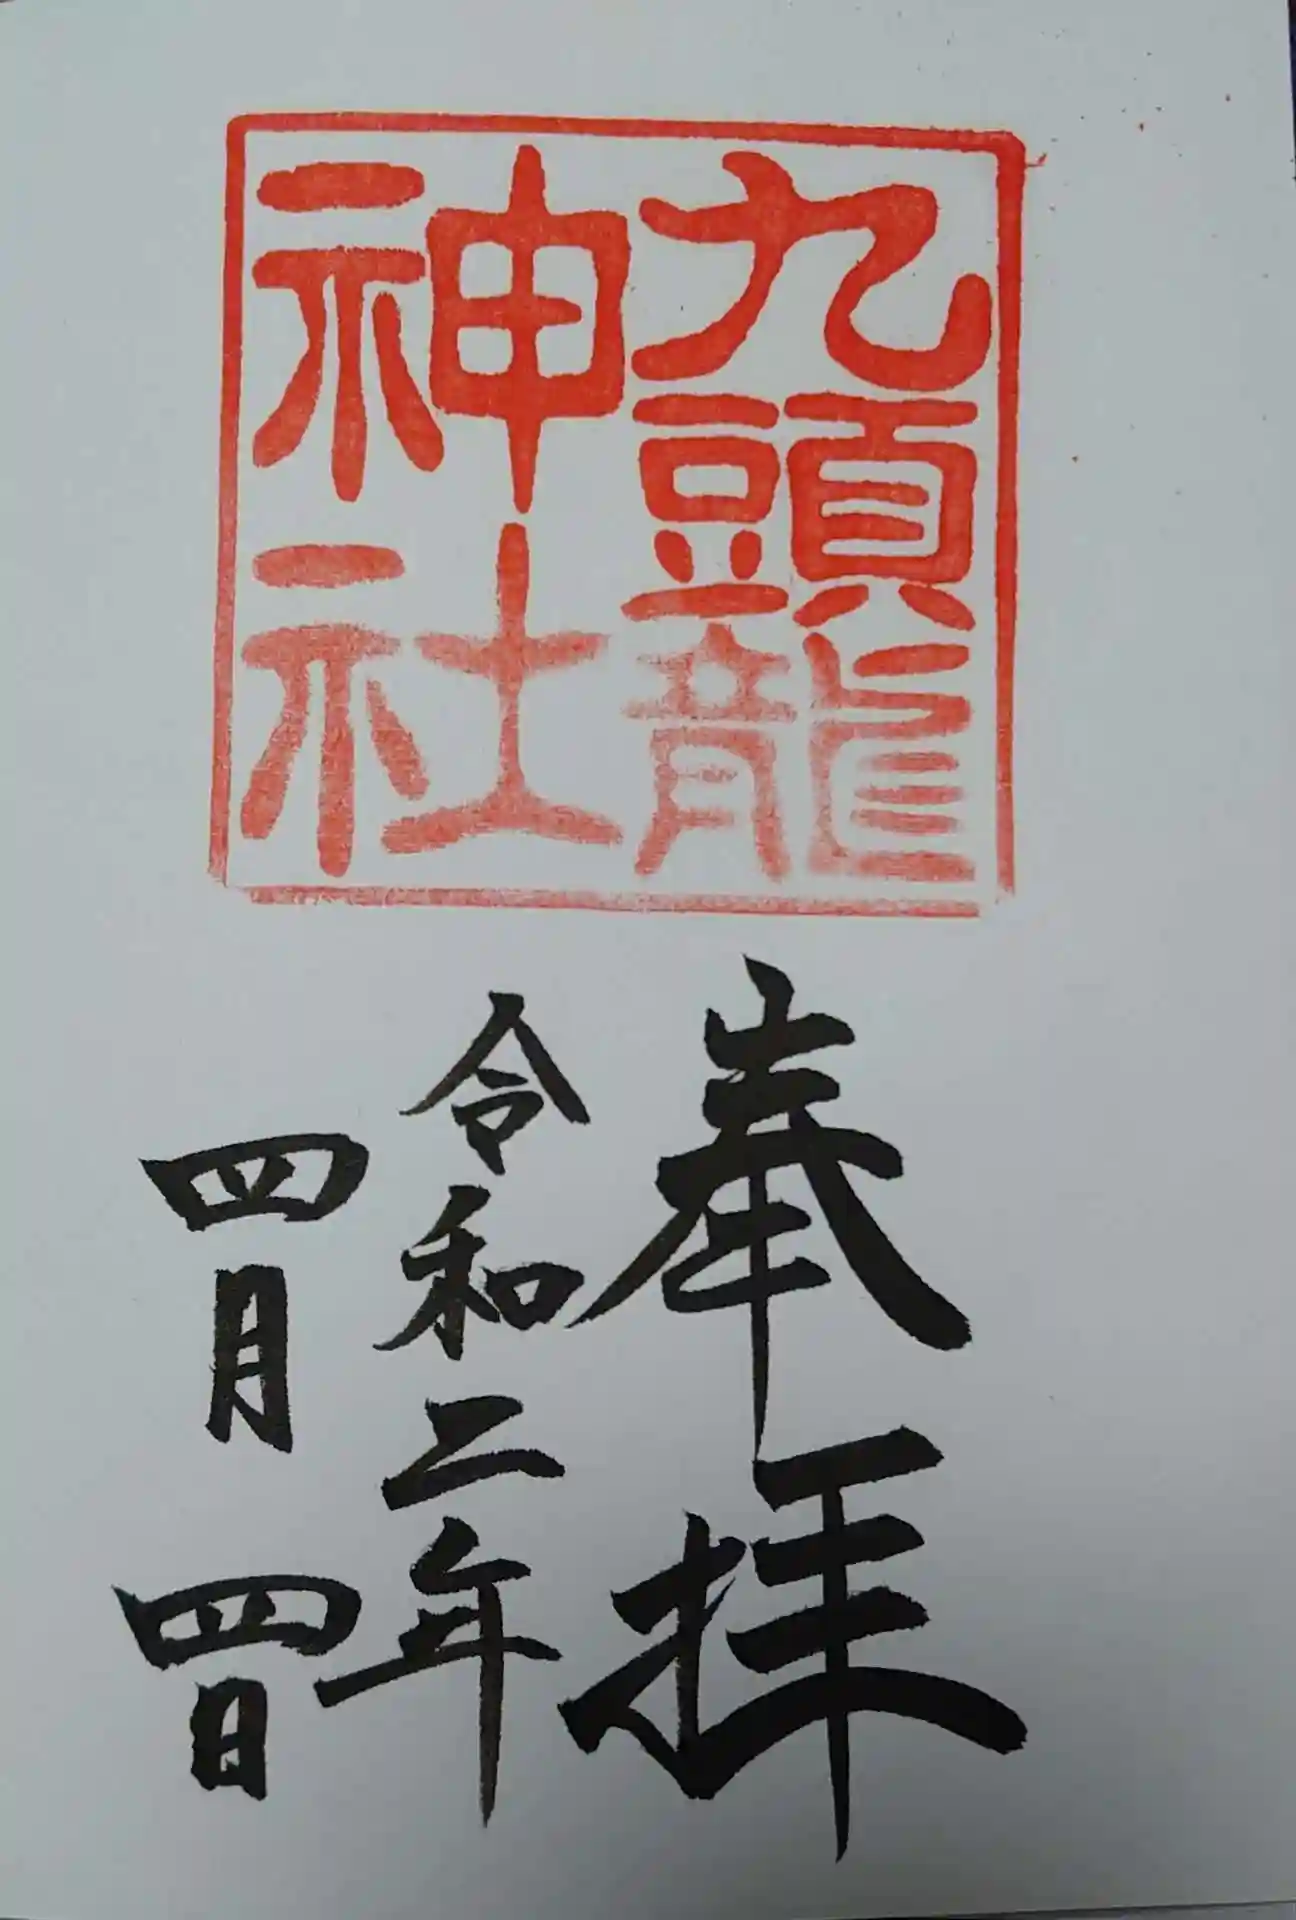 九頭龍
神社
奉拝
令和二年
四月四日